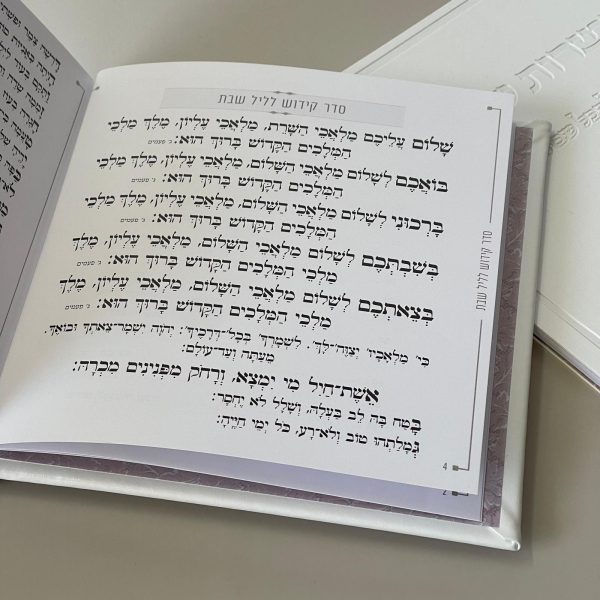 דָּרְשָׁה צֶמֶר
הָיְתָה
וַתָּקָם בְּעוֹד
סדר קידוש לליל שבת
שָׁלוֹם עֲלֵיכֶם מַלְאֲכֵי הַשָּׁרֵת, מַלְאֲכֵי עֶלְיוֹן, מֶלֶךְ מַלְכֵי
הַמְּלָכִים הַקָּדוֹשׁ בָּרוּךְ הוּא: ג׳ פעמים
בּוֹאֲכֶם לְשָׁלוֹם מַלְאֲכֵי הַשָּׁלוֹם, מַלְאֲכֵי עֶלְיוֹן, מֶלֶךְ מַלְכֵי
הַמְּלָכִים הַקָּדוֹשׁ בָּרוּךְ הוּא: ג׳ פעמים
בָּרְכוּנִי לְשָׁלוֹם מַלְאֲכֵי הַשָּׁלוֹם, מַלְאֲכֵי עֶלְיוֹן, מֶלֶךְ מַלְכֵי
הַמְּלָכִים הַקָּדוֹשׁ בָּרוּךְ הוּא: ג׳ פעמים
בְּשִׁבְתְּכֶם לְשָׁלוֹם מַלְאֲכֵי הַשָּׁלוֹם, מַלְאֲכֵי עֶלְיוֹן, מֶלֶךְ
מַלְכֵי הַמְּלָכִים הַקָּדוֹשׁ בָּרוּךְ הוּא: ג׳ פעמים
בְּצֵאתְכֶם לְשָׁלוֹם מַלְאֲכֵי הַשָּׁלוֹם, מַלְאֲכֵי עֶלְיוֹן, מֶלֶךְ
מַלְכֵי הַמְּלָכִים הַקָּדוֹשׁ בָּרוּךְ הוּא: ג׳ פעמים
כִּי מַלְאָכָיו יְצַוֶּה־לָּךְ. לִשְׁמָרְךָ בְּכָל־דְּרָכֶיךָ: יְהֹוָה יִשְׁמָר־צֵאתְךָ וּבוֹאֶךָ.
מֵעַתָּה וְעַד־עוֹלָם:
אֵשֶׁת־חַיִל מִי יִמְצָא, וְרָחֹק מִפְּנִינִים מִכְרָהּ:
בָּטַח בָּהּ לֵב בַּעְלָהּ, וְשָׁלָל לֹא יֶחְסָר:
גְּמָלַתְהוּ טוֹב וְלֹא־רָע, כֹּל יְמֵי חַיֶּיהָ:
סדר קידוש לליל שבת
4
2